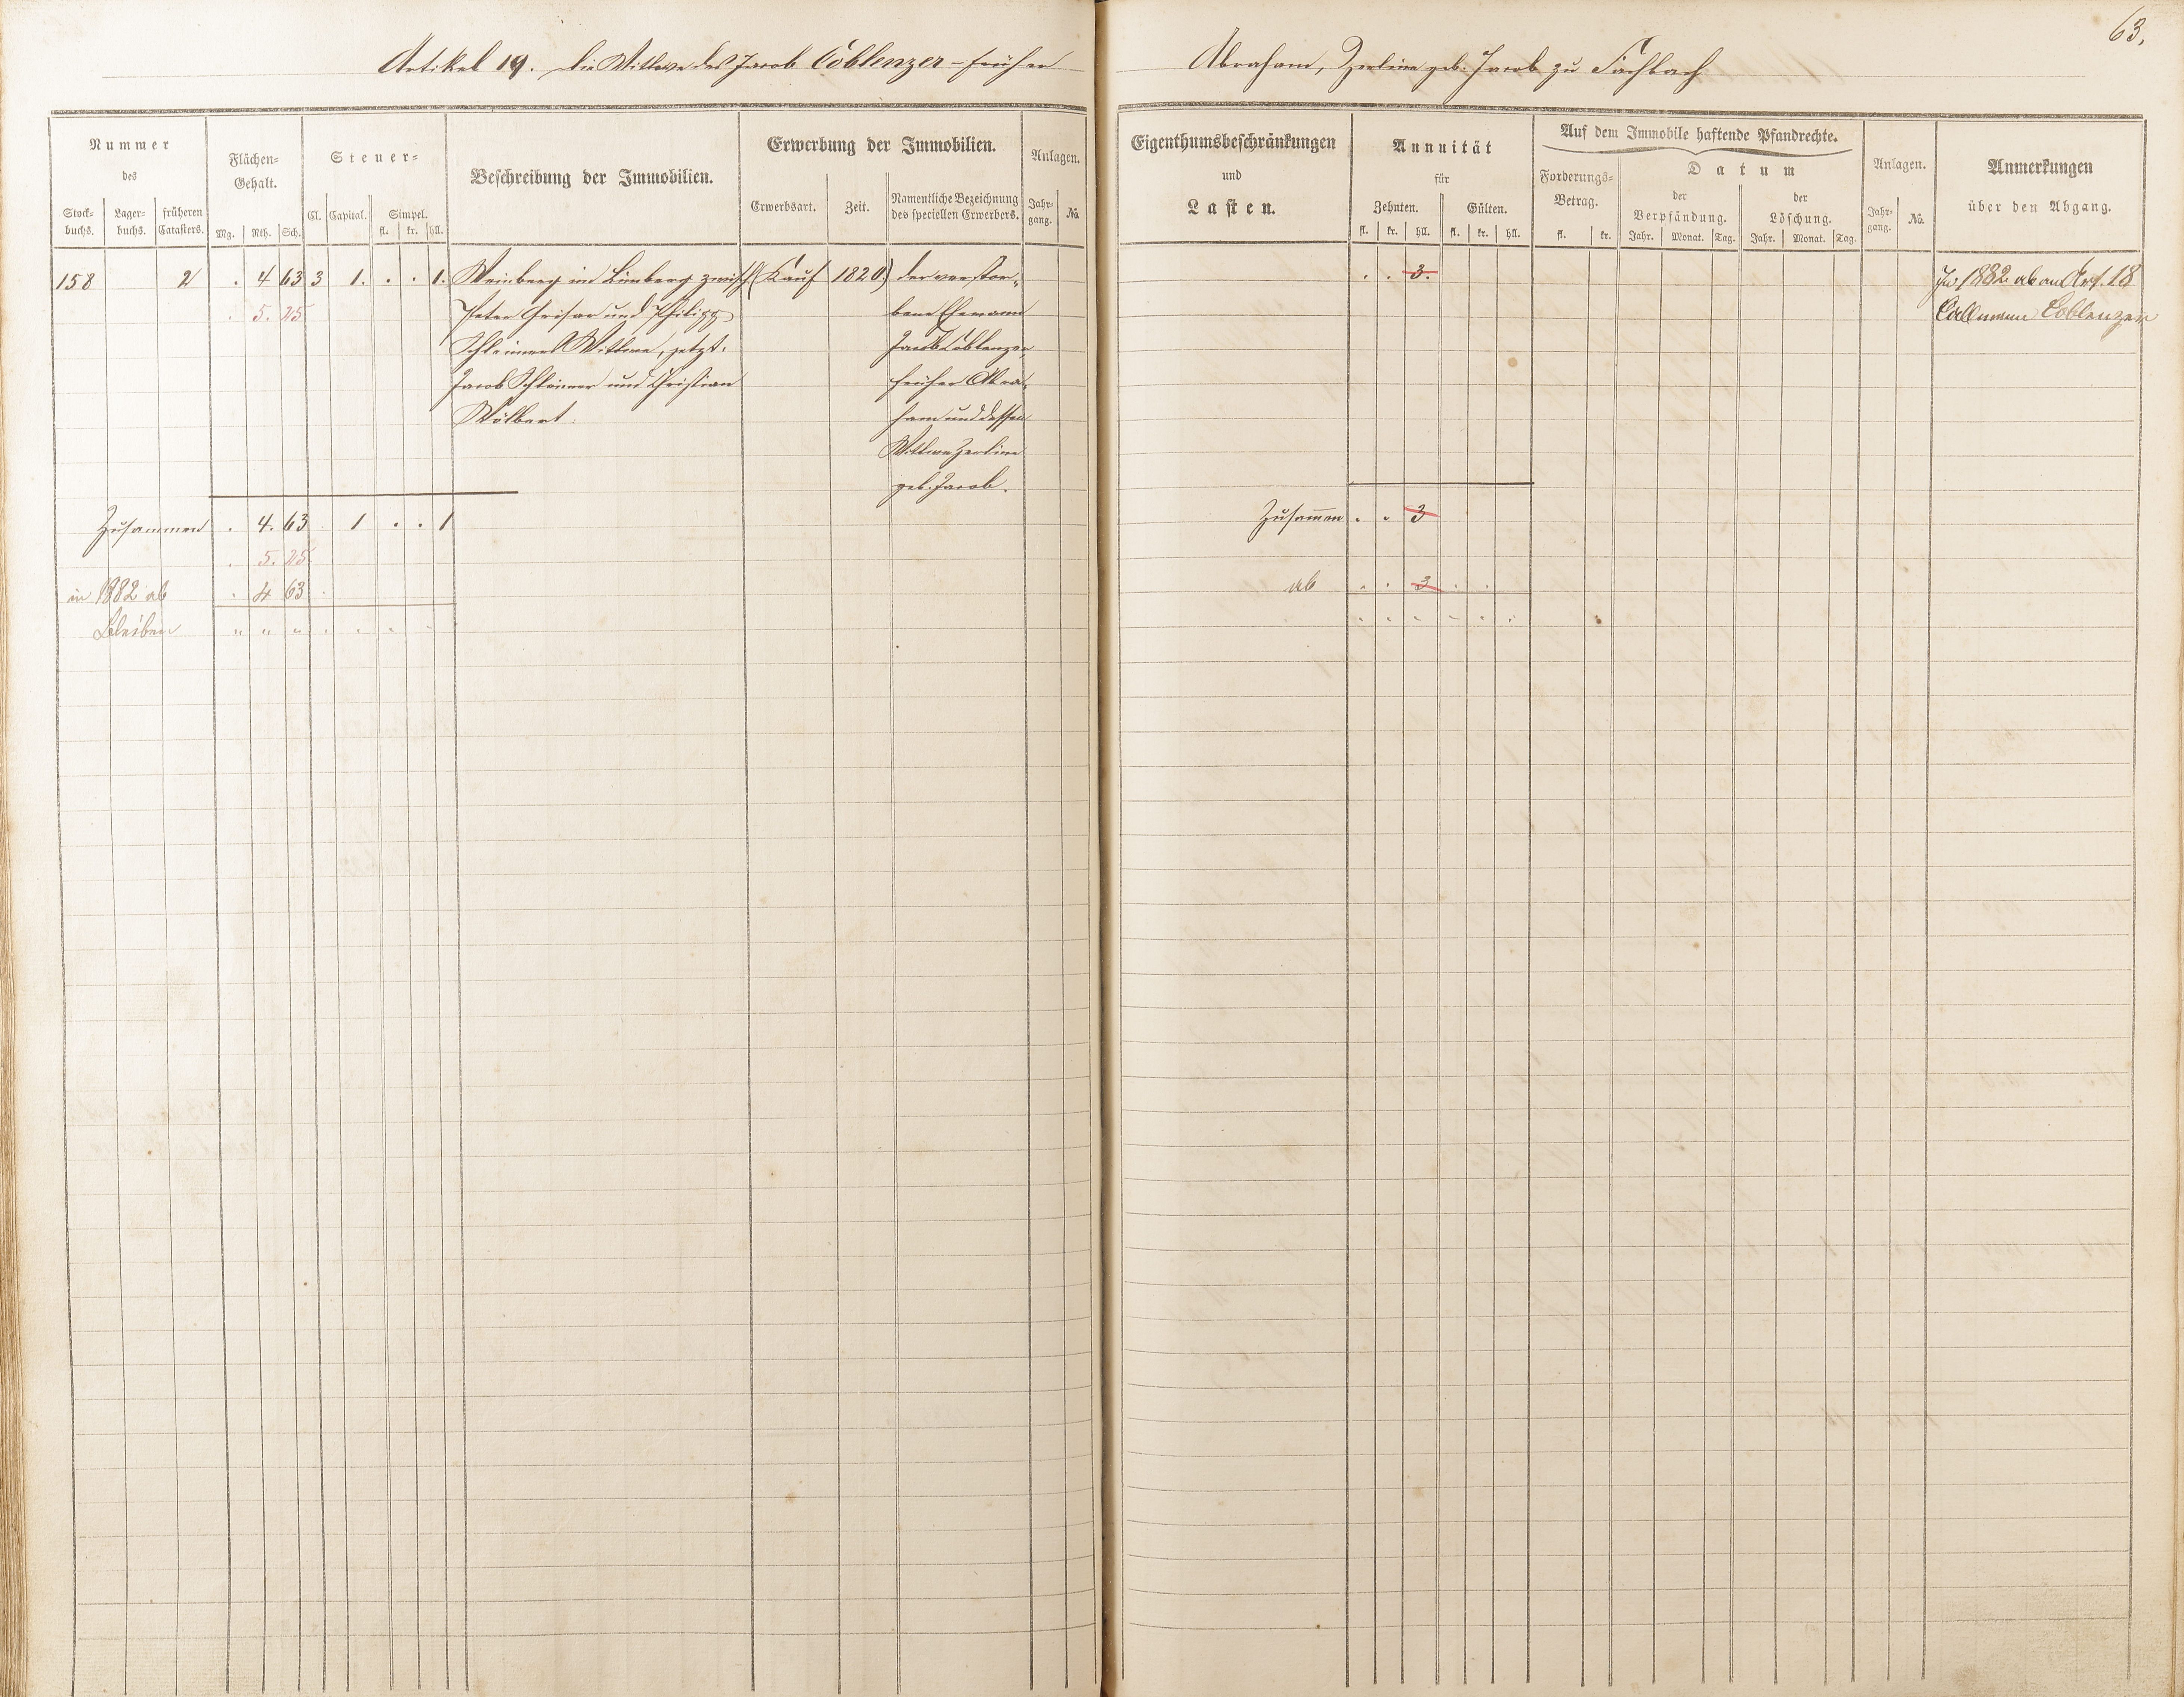 63.
Artikel 19. die Wittwe des Jacob Coblenzer - früher
Abraham, Zerline geb. Jacob zu Fachbach
Nummer
des
Stock-
buchs.
Lager-
buchs.
früheren
Catasters.
Flächen-
Gehalt.
Mg. Rth. Sch.
Steuer-
Cl. Capital. Simpel.
fl. kr. hll.
Beschreibung der Immobilien.
Erwerbung der Immobilien.
Erwerbsart. Zeit.
Namentliche Bezeichnung
des speciellen Erwerbers.
Anlagen.
Jahr-
gang.
No.
Eigenthumsbeschränkungen
und
Lasten.
Annuität
für
Zehnten. Gülten.
fl. kr. hll. fl. kr. hll.
Auf dem Immobile haftende Pfandrechte.
Forderungs-
Betrag.
fl. kr.
Datum
der
Verpfändung.
Jahr. Monat. Tag.
der
Löschung.
Jahr. Monat. Tag.
Anlagen.
Jahr-
gang.
No.
Anmerkungen
über den Abgang.
158 2 . 4 63 3 1. . . 1. Weinberg im Limberg zwisch (Kauf 1820.) der verstor-
. 5. 25 Peter Grisar und Philipp bene Ehemann
Schleimers Wittwe, jetzt: Jacob Coblenzer,
Jacob Schleimer und Christian früher Abra-
Wölbert. ham und dessen
Wittwe Zerline
geb. Jacob.
Zusammen . 4. 63 . 1 . . 1
. 5. 25
in 1882 ab . 4 63 .
Bleiben " " " " " " "
. . 3.
In 1882 ab an Art. 18
Callmann Coblenzer
Zusammen . . 3
ab . . 3 . .
" " " " " "